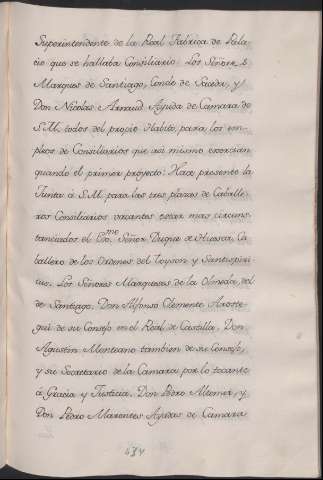 Superintendente de la Real Fabrica de Pala-
cio que se hallaba Consiliario: Los Señores
Marques de Santiago, Conde de Saceda, y
Don Nicolas Arnaud Ayuda de Camara de
S.M. todos del propio Habito, para los em-
pleos de Consiliarios que asi mismo exercian
quando el primer proyecto: Hace presente la
Junta à S.M. para las tres plazas de Caballe-
ros Consiliarios vacantes estar mas circuns-
tanciados el Exmo. Señor Duque de Huescar, Ca-
ballero de los Ordenes del Toyson y Santispiri-
tus. Los Señores Marqueses de la Olmeda, del
de Santiago. Don Alfonso Clemente Aroste-
gui de su Consejo en el Real de Castilla. Don
Agustin Montiano tambien de su Consejo,
y su Secretario de la Camara por lo tocante
à Gracia y Justicia. Don Pedro y
Don Pedro Ayudas de Camara